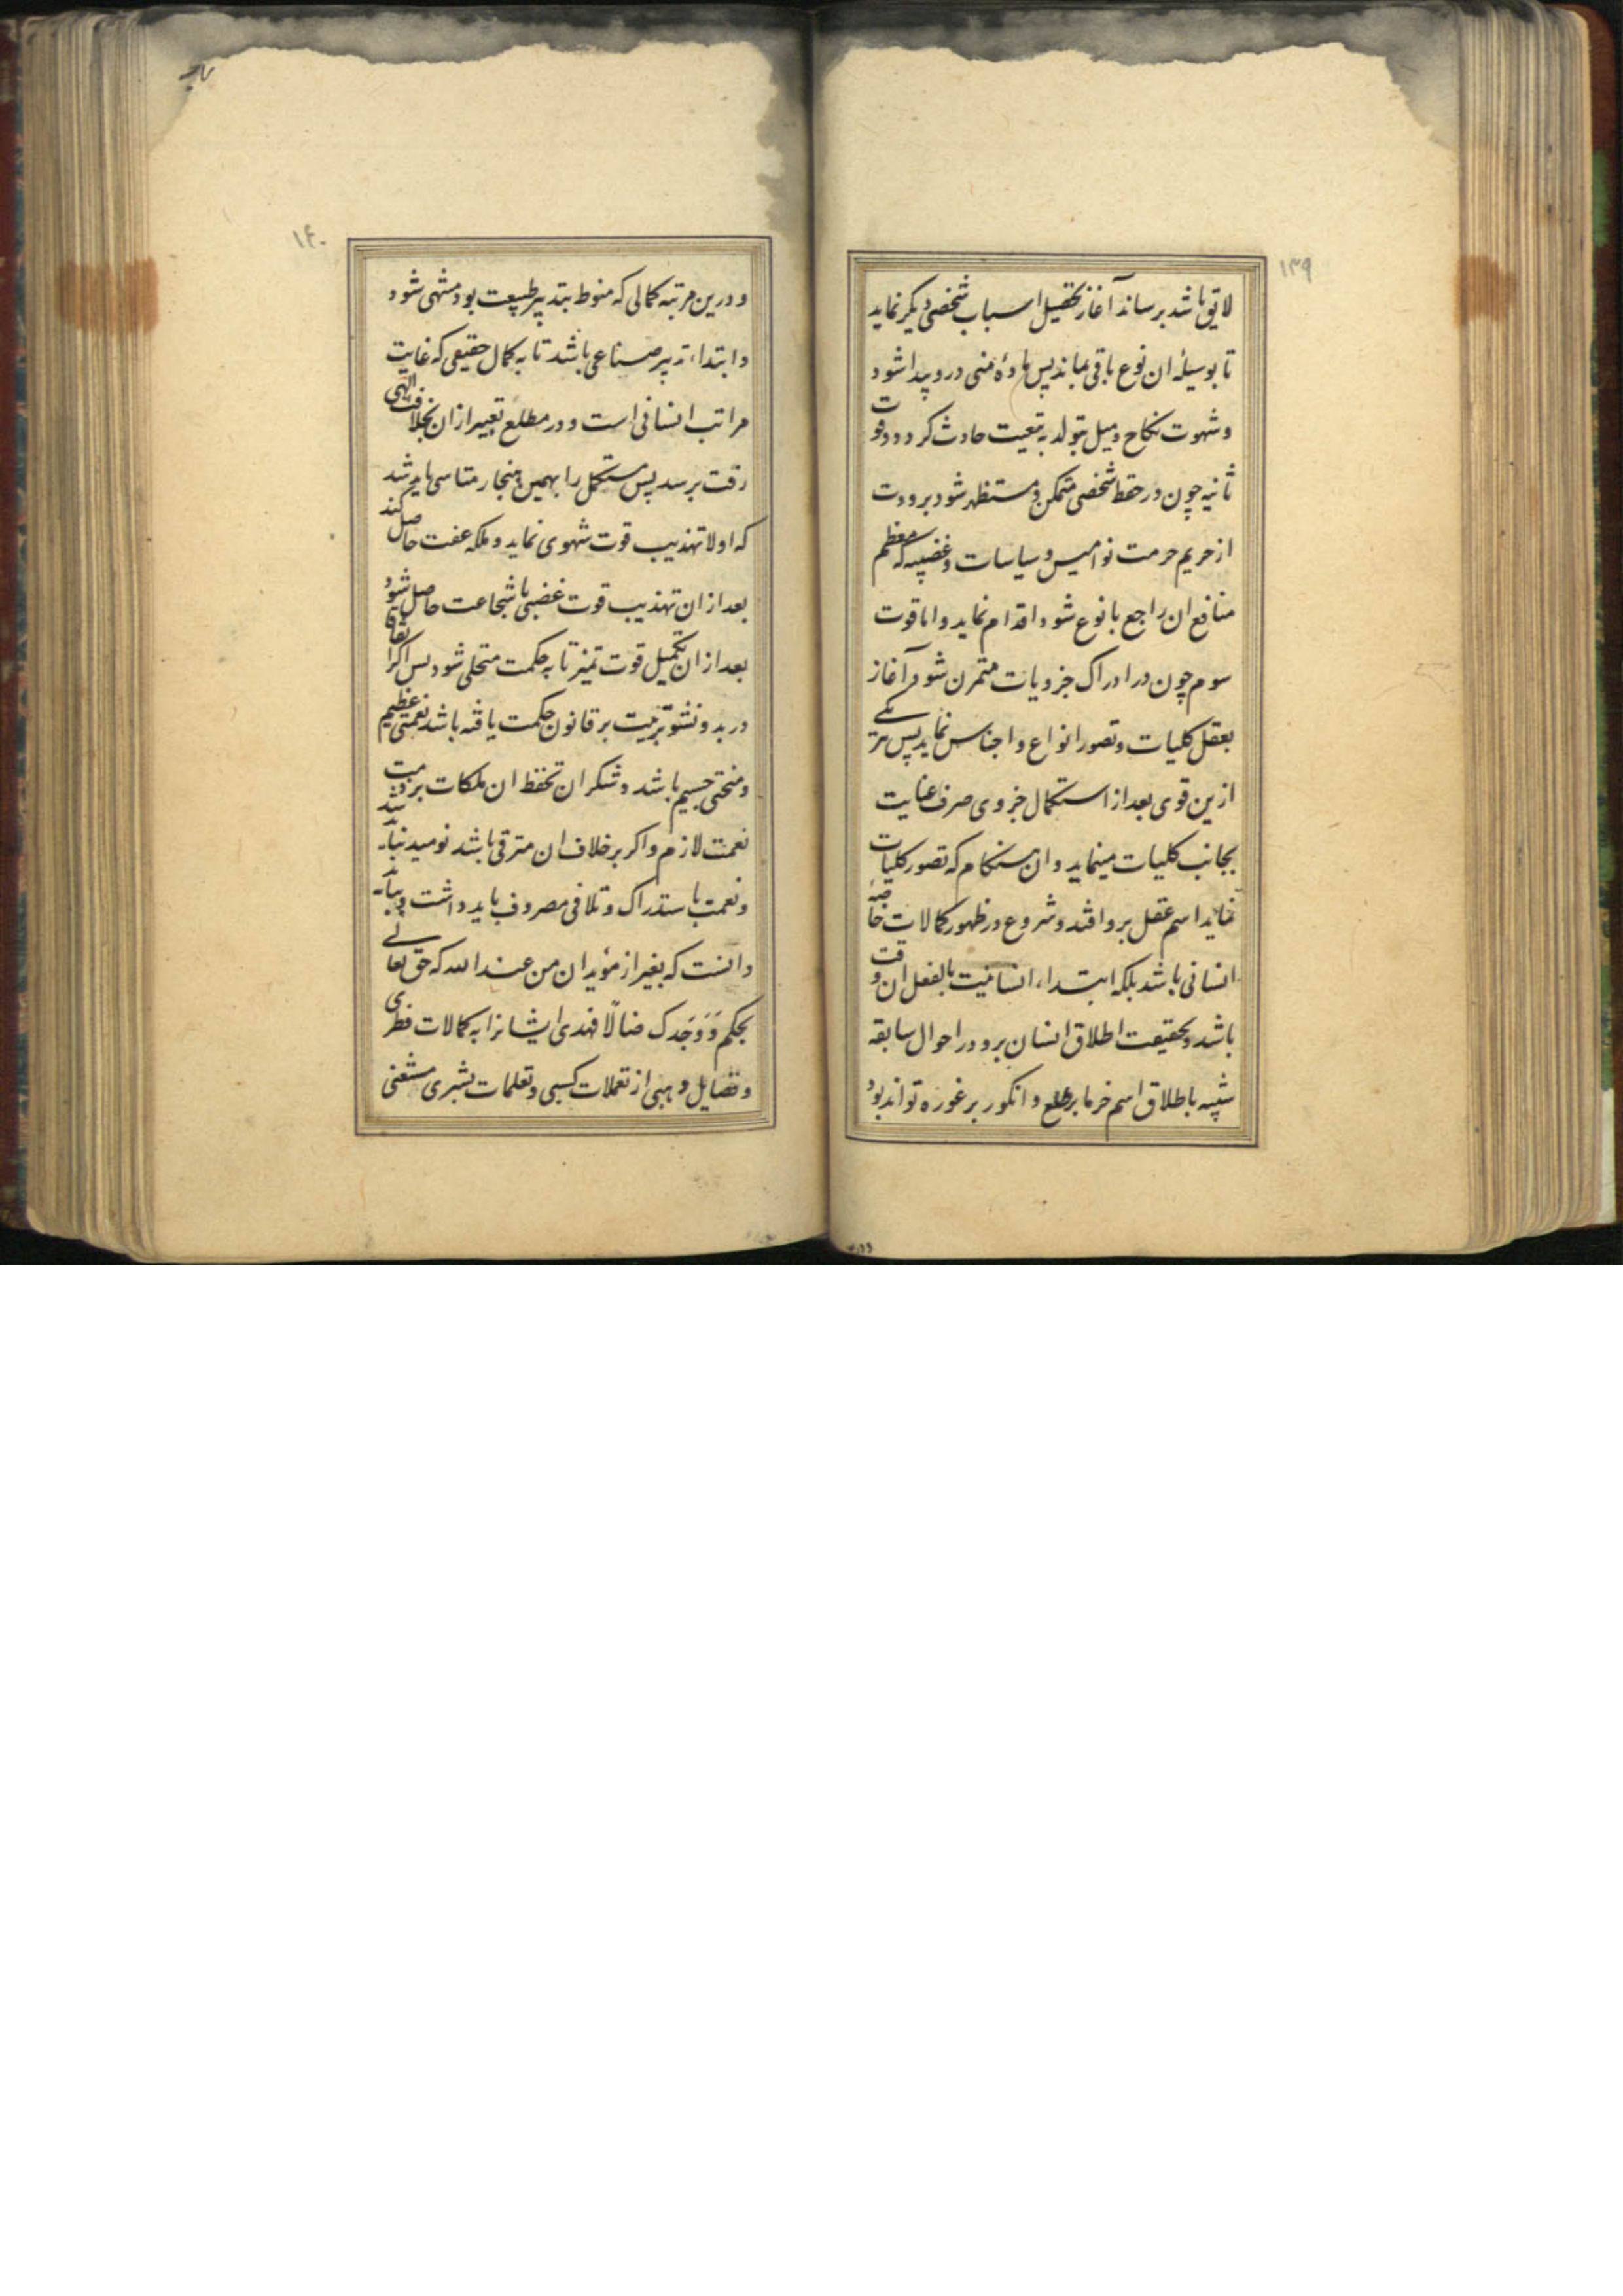 ۱۳۹
لایق باشد برساند آغاز تحصیل اسباب شخصی دیگر نماید
تا بوسیلهٔ ان نوع باقی بماند پس مادهٔ منی درو پیدا شود
و شهوت نکاح و میل بتولد به تبعیت حادث کردد و قوت
ثانیه چون در حفظ شخصی متمکن و مستظهر شود بر
از حریم حرمت نوامیس و سیاسات و غضبیه که معظم
منافع ان راجع با نوع شود اقدام نماید و اما قوت
سوم چون در ادراک جزویات متمرن شود آغاز
بعقل کلیات و تصور انواع و اجناس نماید پس هر یکی
ازین قوی بعد از استکمال جزوی صرف عنایت
بجانب کلیات مینماید و ان هنکام که تصور کلیات
نماید اسم عقل برو افتد و شروع در ظهور کمالات خاصهٔ
انسانی باشد بلکه ابتداء انسانیت بالفعل ان وقت
باشد و بحقیقت اطلاق انسان برو در احوال سابقه
شبیه باطلاق اسم خرما بر طلع و انکور بر غوره تواند بود
۱۴۰
و درین مرتبه کمالی که منوط بتدبیر طبیعت بود منتهی شود
و ابتداء تدبیر صناعی باشد تا به کمال حقیقی که غایت
مراتب انسانی است و در مطلع تعبیر ازان بخلافت الهی
رفت برسد پس مستکمل را بهمین هنجار متاسی باید شد
که اولا تهذیب قوت شهوی نماید و ملکه عفت حاصل کند
بعد از ان تهذیب قوت غضبی تا شجاعت حاصل شود
بعد از ان تکمیل قوت تمیز تا به حکمت متحلی شود پس اکر اتفاقا
در بدو نشو تربیت بر قانون حکمت یافته باشد نعمتی عظیم
و منحتی جسیم باشد و شکر ان تحفظ ان ملکات بر ذمت
نعمت لازم و اکر بر خلاف ان مترقی باشد نومید نباید شد
و نعمت باستدراک و تلافی مصروف باید داشت و بباید
دانست که بغیر از مؤیدان من عند الله که حق تعالی
بحکم وَ وَجَدَک ضالًا فهدی ایشانرا به کمالات فطری
و فضایل وهبی از تعملات کسبی و تعلمات بشری مستغنی